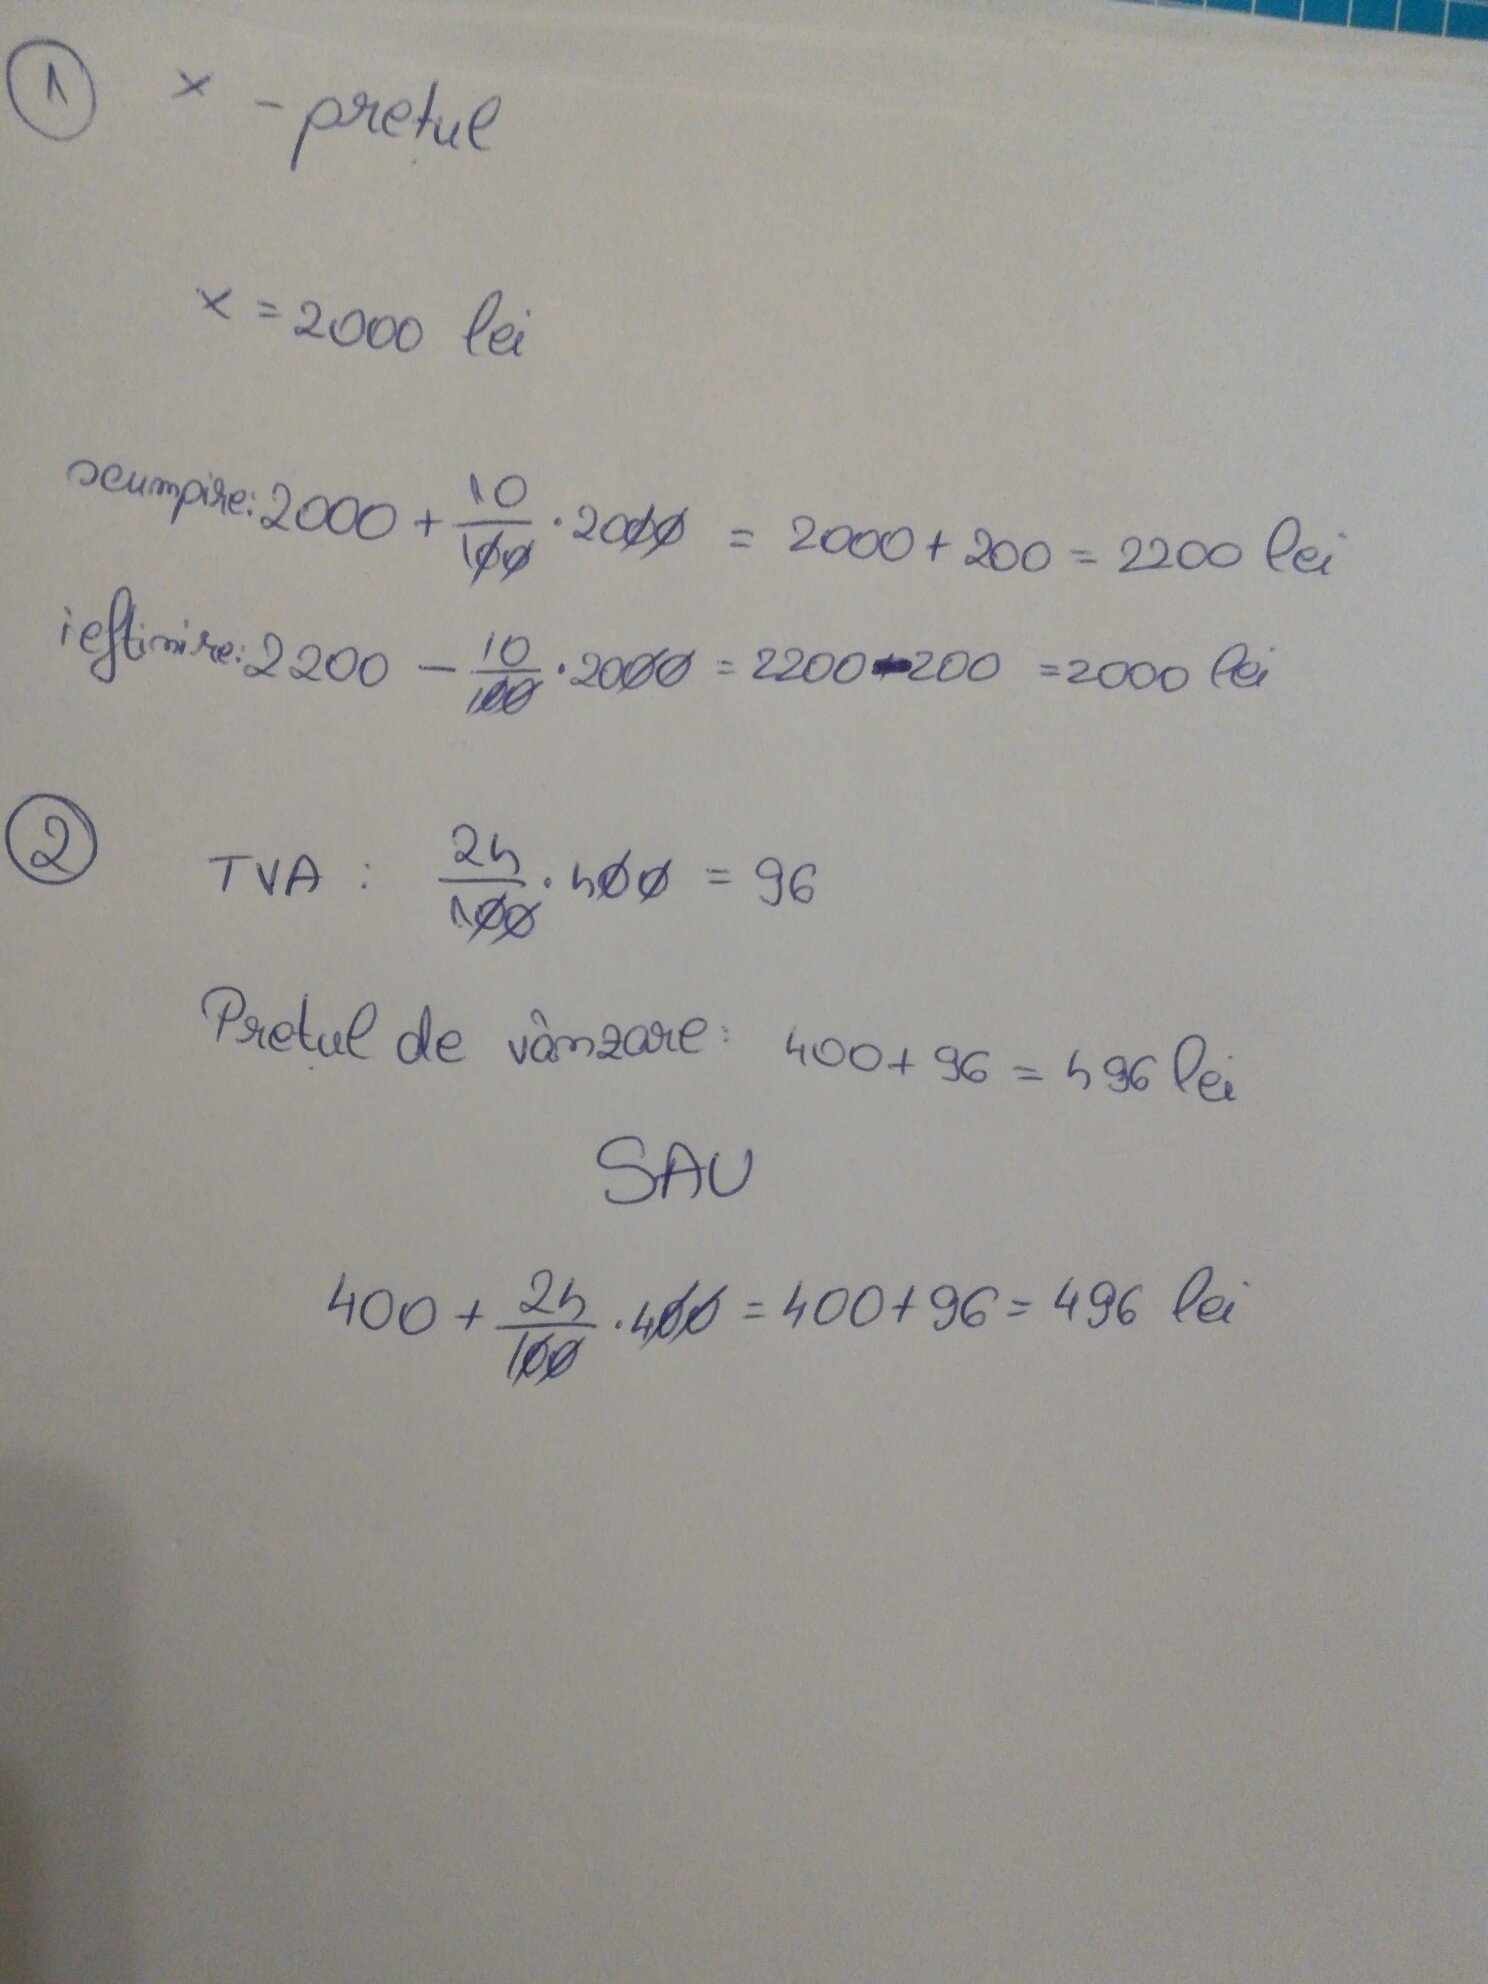 1 x - prețul
x = 2000 lei
scumpire: 2000 + 10/100 · 2000 = 2000 + 200 = 2200 lei
ieftinire: 2200 - 10/100 · 2000 = 2200 - 200 = 2000 lei
2 TVA : 24/100 · 400 = 96
Prețul de vânzare: 400 + 96 = 496 lei
SAU
400 + 24/100 · 400 = 400 + 96 = 496 lei